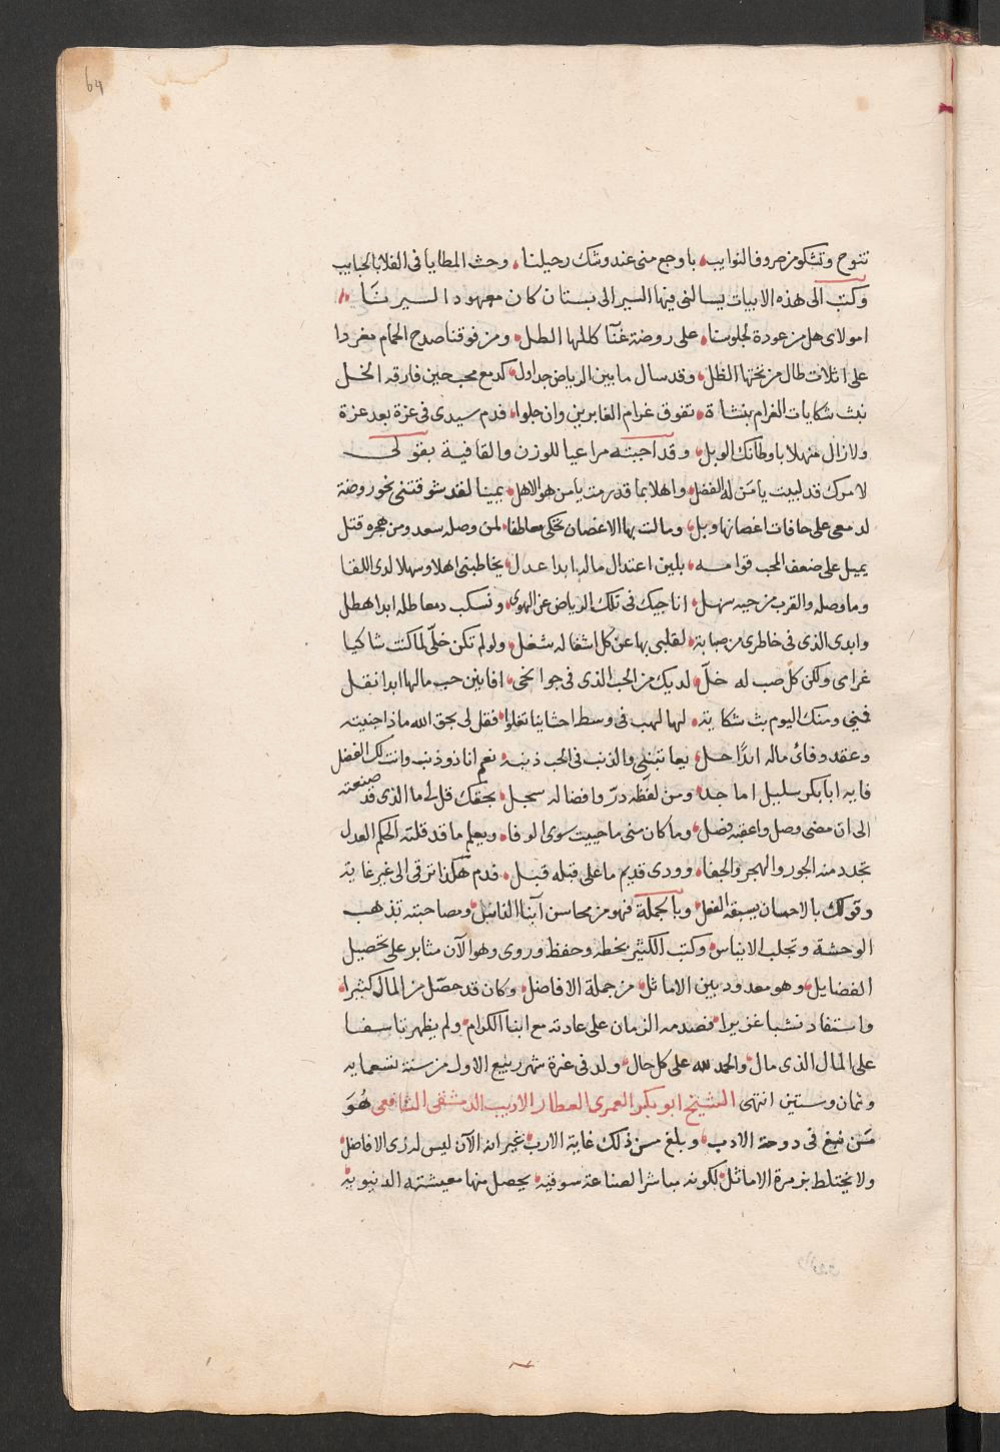 64
تنوح وتشكو من صروف النوايب، باوجع مني عند وشك رحيلنا، وحث المطايا في الفلا بالحبايب
وكتب الى هذه الابيات يسالني فيها السير الى بستان كان معهودا لسيرنا
امولاي هل من عودة لجلوسنا، على روضة غنّا كالمها الطل، ومن فوقنا صدح الحمام مغردا
على اثلات طال من تحتها الظل، وقد سال ما بين الرياض جداول، كدمع محب حين فارقه الخل
نبث شكايات الغرام بنشاة، تفوق غرام الغابرين وان جلوا، فدم سيدي في عزة بعد عزة
ولا زال منهلا باوطانك الوبل، وقد اجبته مراعيا للوزن والقافية بقولي
لامرك قد لبيت يا من له الفضل، واهلا بما قد رمت يا من هو الاهل، يمينا لقد شوقتني نحو روضة
لدمعي على حافات اغصانها وبل، ومالت بها الاغصان تحكي معاطفا، لمن وصله سعد ومن هجره قتل
يميل على ضعف المحب قوامه، بلين اعتدال ماله ابدا عدل، يخاطبني اهلا وسهلا لدى اللقا
وما وصله والقرب من حيه سهل، اناجيك في تلك الرياض عن الهوى، ونسكب دمعا طله ابدا هطل
وابدي الذي في خاطري من صبابة، لقلبي بها عن كل اشغاله شغل، ولو لم تكن خلّي لما كنت شاكيا
غرامي ولكن كل صب له خلّ، لديك من الحب الذي في جوانحي، افانين حب مالها ابدا نقل
فمني ومنك اليوم بث شكاية، لها لهب في وسط احشاينا تغلوا، فقل لي بحق الله ماذا جنيته
وعقد وفائ ماله ابدًا حل، يعاتبني والذنب في الحب ذنبه، نعم انا ذو ذنب وانت لك الفضل
فايه ابا بكر سليل اماجد، ومن لفظه درّ وافضاله سجل، بحقك قل لي ما الذي قد صنعته
الى ان مضى وصل واعقبه فصل، وما كان مني ما حييت سوى الوفا، ويعلم ما قد قلته الحكم العدل
تجدد منه الجور والهجر والجفا، وودي قديم ما على قبله قبل، فدم هكذا ترقى الى غير غاية
وقولك بالاحسان يسبقه الفعل، وبالجملة فهو من محاسن ابنا الفاضل، ومصاحبته تذهب
الوحشة وتجلب الايناس، وكتب الكثير بخطه وحفظ وروى وهو الآن مثابر على تحصيل
الفضايل، وهو معدود بين الاماثل، من جملة الافاضل، وكان قد حصّل من المال كثيرا،
واستفاد نشبا غزيرا، فصدمه الزمان على عادته مع ابنا الكرام، ولم يظهر تاسفا
على المال الذي مال، والحمد لله على كل حال، ولد في غرة شهر ربيع الاول من سنة تسعمايه
وثمان وستين انتهى الشيخ ابو بكر العمري العطار الاديب الدمشقي الشافعي هُوَ
مَن نبغ في دوحة الادب، وبلغ من ذلك غاية الارب، غير انه الآن ليس له زي الافاضل،
ولا يختلط بزمرة الاماثل، لكونه مباشرا لصناعة سوقيه، يحصل منها معيشته الدنيوية،